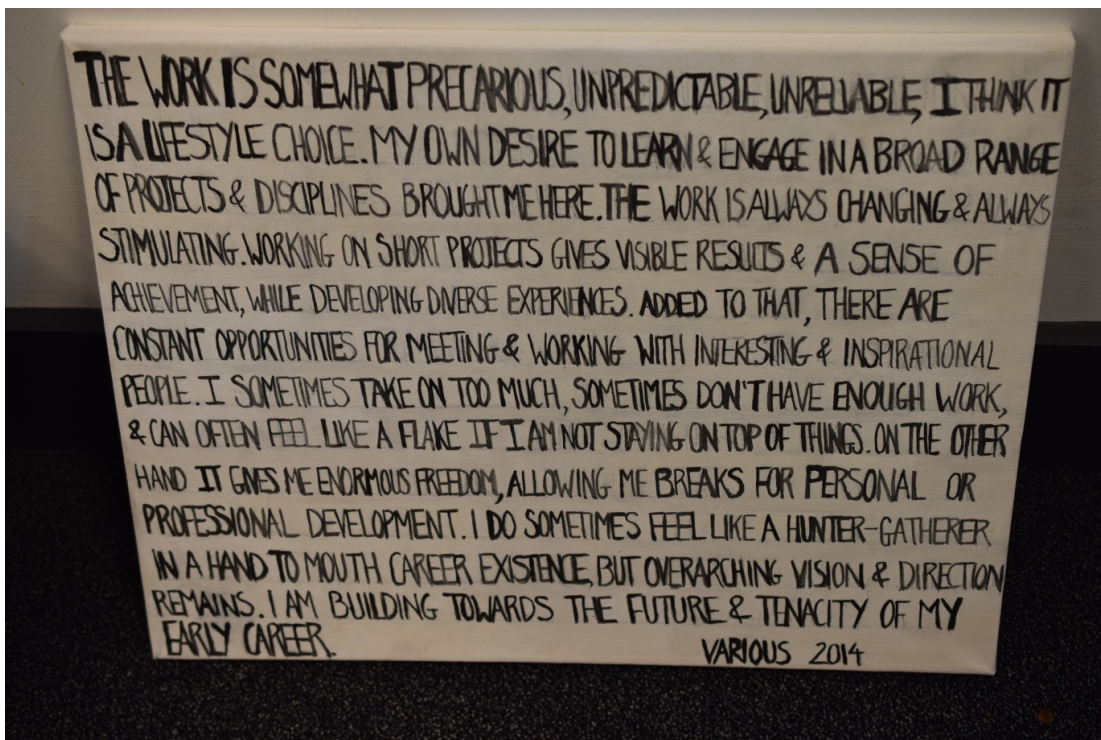 THE WORK IS SOMEWHAT PRECARIOUS, UNPREDICTABLE, UNRELIABLE, I THINK IT
IS A LIFESTYLE CHOICE. MY OWN DESIRE TO LEARN & ENGAGE IN A BROAD RANGE
OF PROJECTS & DISCIPLINES BROUGHT ME HERE. THE WORK IS ALWAYS CHANGING & ALWAYS
STIMULATING. WORKING ON SHORT PROJECTS GIVES VISIBLE RESULTS & A SENSE OF
ACHIEVEMENT, WHILE DEVELOPING DIVERSE EXPERIENCES. ADDED TO THAT, THERE ARE
CONSTANT OPPORTUNITIES FOR MEETING & WORKING WITH INTERESTING & INSPIRATIONAL
PEOPLE. I SOMETIMES TAKE ON TOO MUCH, SOMETIMES DON'T HAVE ENOUGH WORK,
& CAN OFTEN FEEL LIKE A FLAKE IF I AM NOT STAYING ON TOP OF THINGS. ON THE OTHER
HAND IT GIVES ME ENORMOUS FREEDOM, ALLOWING ME BREAKS FOR PERSONAL OR
PROFESSIONAL DEVELOPMENT. I DO SOMETIMES FEEL LIKE A HUNTER-GATHERER
IN A HAND TO MOUTH CAREER EXISTENCE, BUT OVERARCHING VISION & DIRECTION
REMAINS. I AM BUILDING TOWARDS THE FUTURE & TENACITY OF MY
EARLY CAREER.
VARIOUS 2014